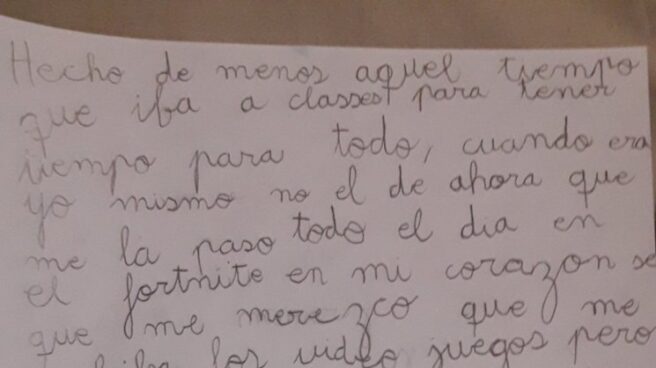 Hecho de menos aquel tiempo
que iba a classes para tener
tiempo para todo, cuando era
yo mismo no el de ahora que
me la paso todo el dia en
el fortnite en mi corazon se
que me merezco que me
los video juegos pero